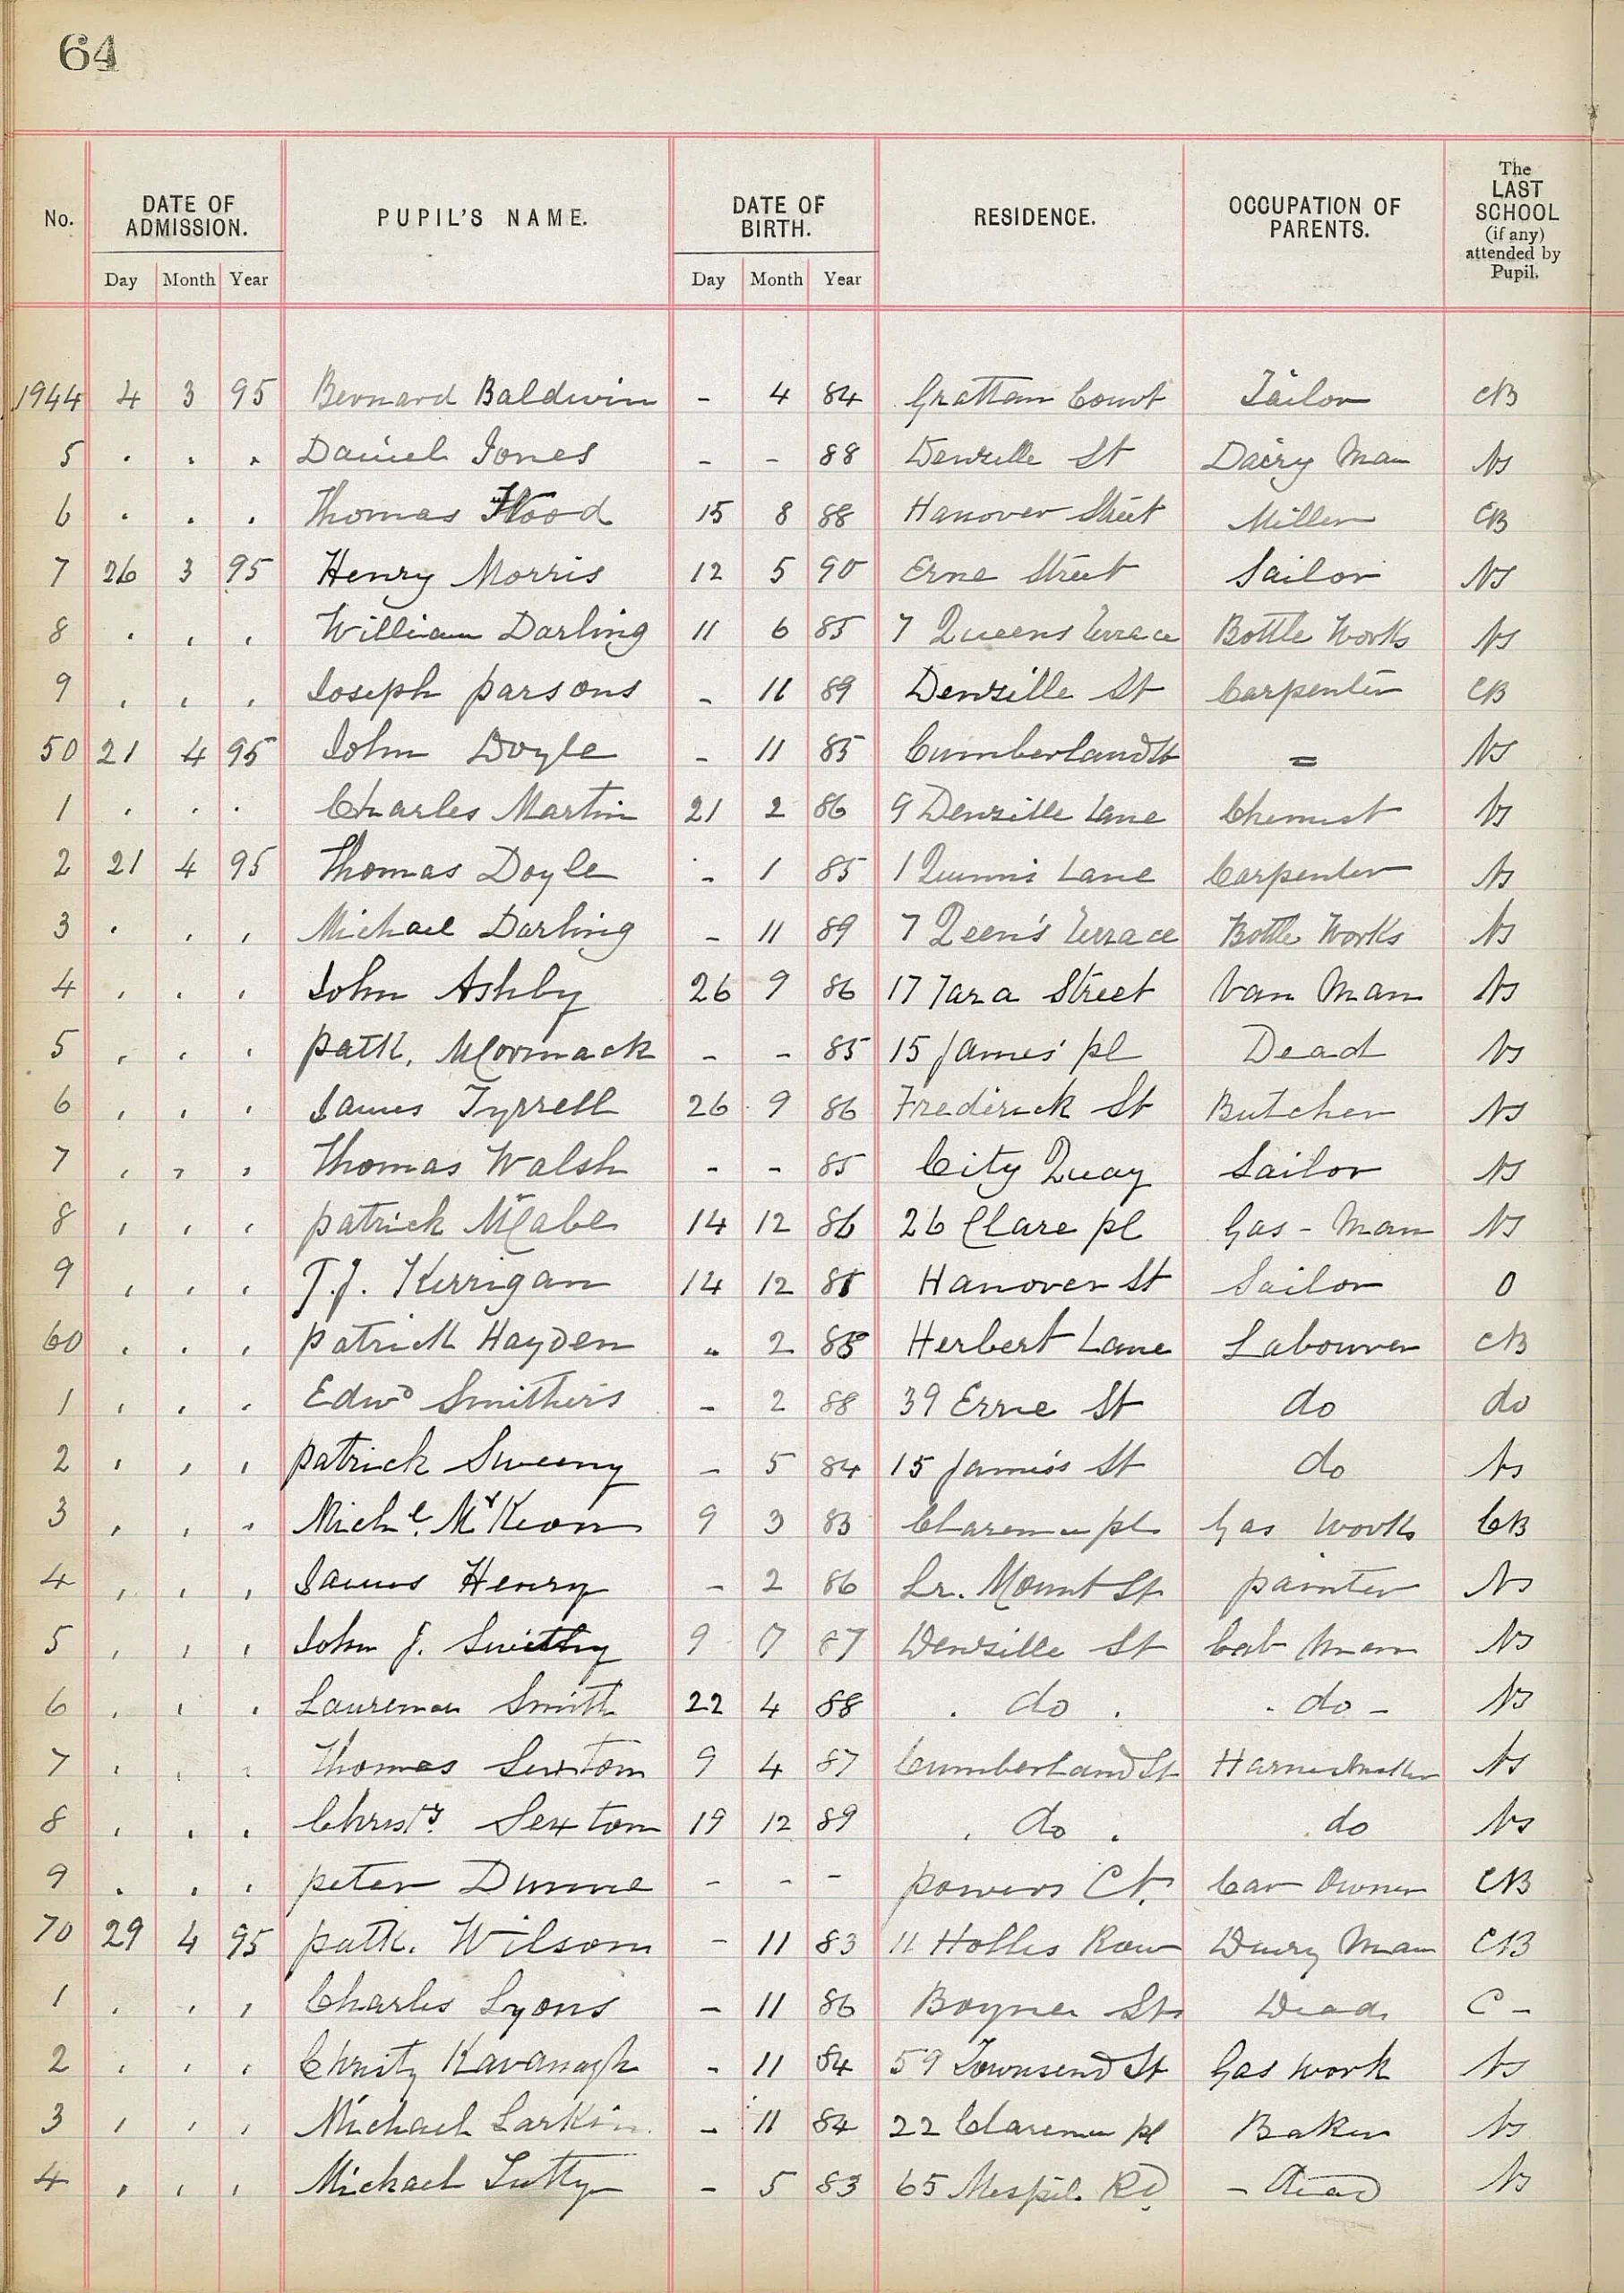 64
No. DATE OF ADMISSION. PUPIL'S NAME. DATE OF BIRTH. RESIDENCE. OCCUPATION OF PARENTS. The LAST SCHOOL (if any) attended by Pupil.
Day Month Year Day Month Year
1944 4 3 95 Bernard Baldwin - 4 84 Grattan Court Tailor CB
5 . . . Daniel Jones - - 88 Denzille St Dairy Man NS
6 . . . Thomas Flood 15 8 88 Hanover Street Miller CB
7 26 3 95 Henry Morris 12 5 90 Erne Street Sailor NS
8 . , , William Darling 11 6 85 7 Queens Terrace Bottle Works NS
9 , , , Joseph Parsons - 11 89 Denzille St Carpenter CB
50 21 4 95 John Doyle - 11 85 Cumberland St = NS
1 . . . Charles Martin 21 2 86 9 Denzille Lane Chemist NS
2 21 4 95 Thomas Doyle - 1 85 1 Quinn's Lane Carpenter NS
3 . , , Michael Darling - 11 89 7 Qeen's Terrace Bottle Works NS
4 , . , John Ashby 26 9 86 17 Tara Street Van Man NS
5 , , , Patk. McCormack - - 85 15 James' Pl Dead NS
6 , , , James Tyrrell 26 9 86 Frederick St Butcher NS
7 , , , Thomas Walsh - - 85 City Quay Sailor NS
8 , , , Patrick McCabe 14 12 86 26 Clare Pl Gas-Man NS
9 , , , T.J. Kerrigan 14 12 Hanover St Sailor O
60 . . , Patrick Hayden " 2 Herbert Lane Labourer CB
1 , , , Edwd Smithers - 2 88 39 Erne St do do
2 , , , Patrick Sweeny - 5 84 15 James's St do NS
3 , , , Michl. McKeon 9 3 83 Clarence Pl. Gas Works CB
4 , , , James Henry - 2 86 Lr. Mount St Painter NS
5 , , , John J. 9 7 87 Denzille St Cab Man NS
6 , , , Laurence Smith 22 4 88 . do . . do - NS
7 , , , Thomas Sexton 9 4 87 Cumberland St Harnessmaker NS
8 , . , Christr. Sexton 19 12 89 . do . do NS
9 . . , Peter Dunne - - - Powers Ct. Car Owner CB
70 29 4 95 Patk. Wilson - 11 83 11 Holles Row Dairy Man CB
1 . , , Charles Lyons - 11 86 Boyne St Dead C -
2 , , , Christy Kavanagh - 11 84 59 Townsend St Gas Work NS
3 , , , Michael Larkin - 11 84 22 Clarence Pl Baker NS
4 , , , Michael Tutty - 5 83 65 Mespil Rd - Dead NS